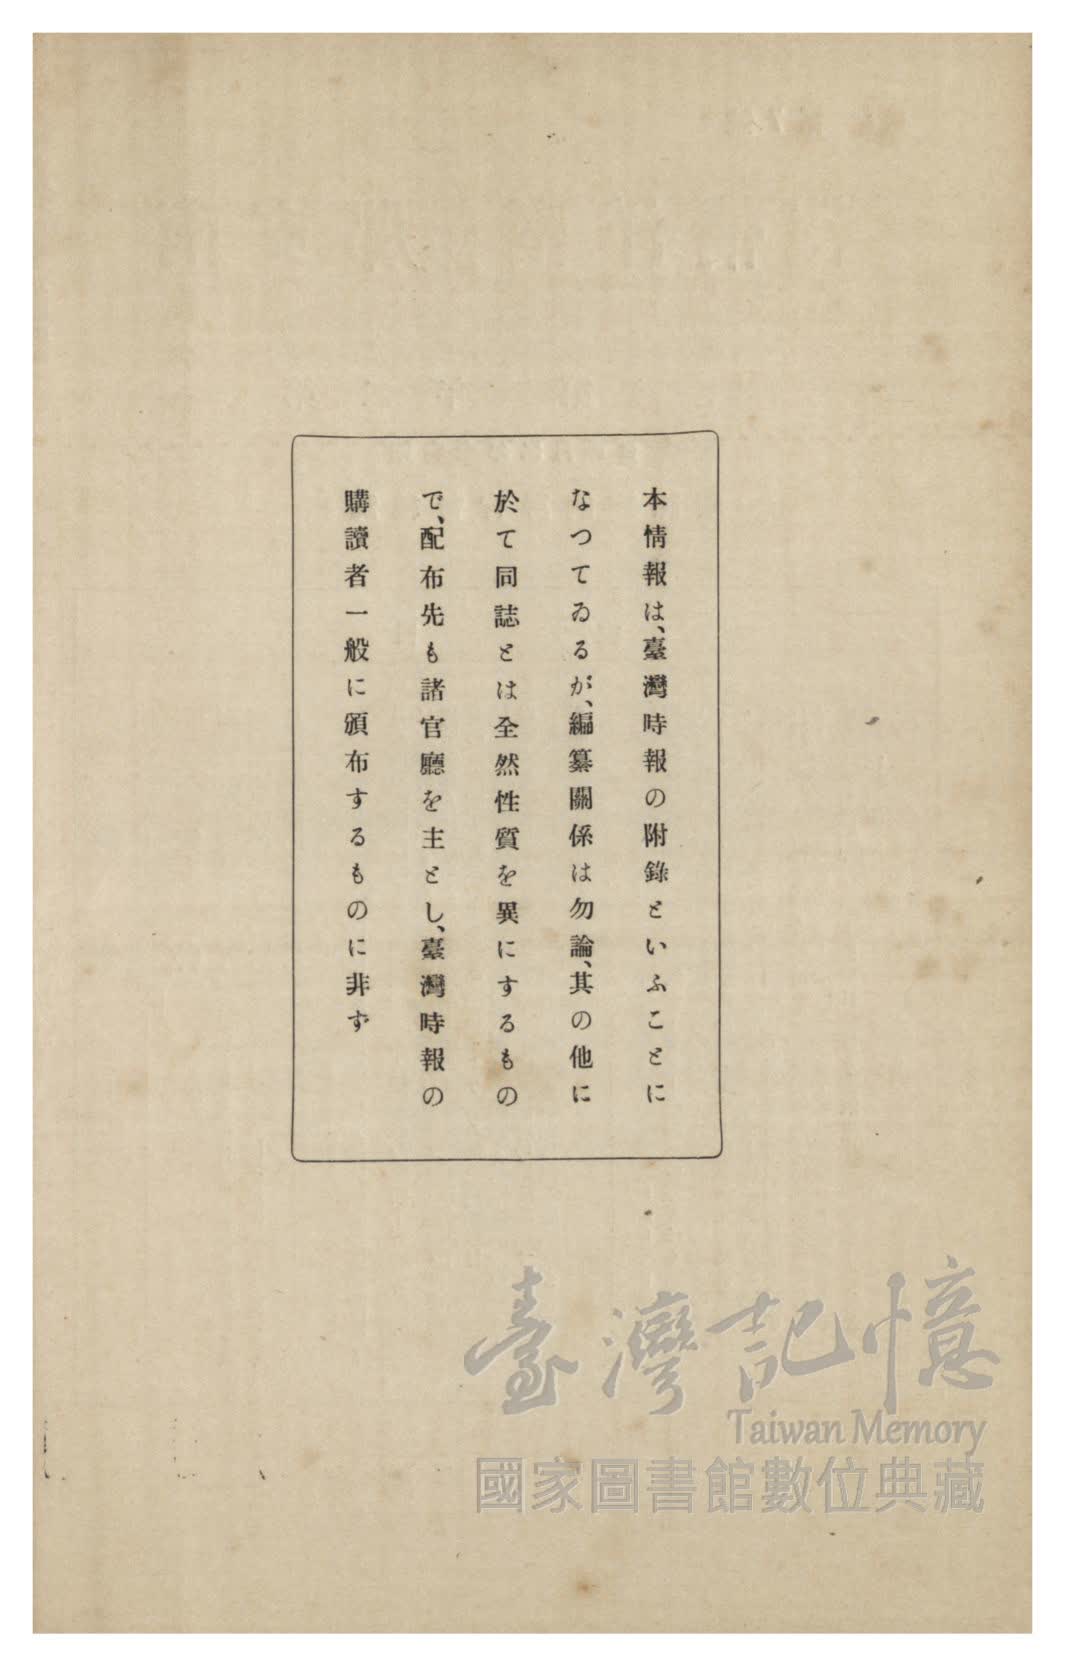 本情報は、臺灣時報の附錄といふことに
なつてゐるが、編纂關係は勿論、其の他に
於て同誌とは全然性質を異にするもの
で、配布先も諸官廳を主とし、臺灣時報の
購讀者一般に頒布するものに非ず
臺灣記憶
Taiwan Memory
國家圖書館數位典藏